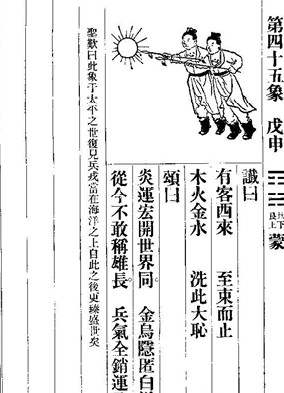 第四十五象 戊申 ䷃ 坎下艮上 蒙
讖曰
有客西來 至東而止
木火金水 洗此大恥
頌曰
炎運宏開世界同。 金烏隱匿白
從今不敢稱雄長。 兵氣全銷運
聖歎曰此象于太平之世復見兵戎當在海洋之上自此之後更臻盛世矣